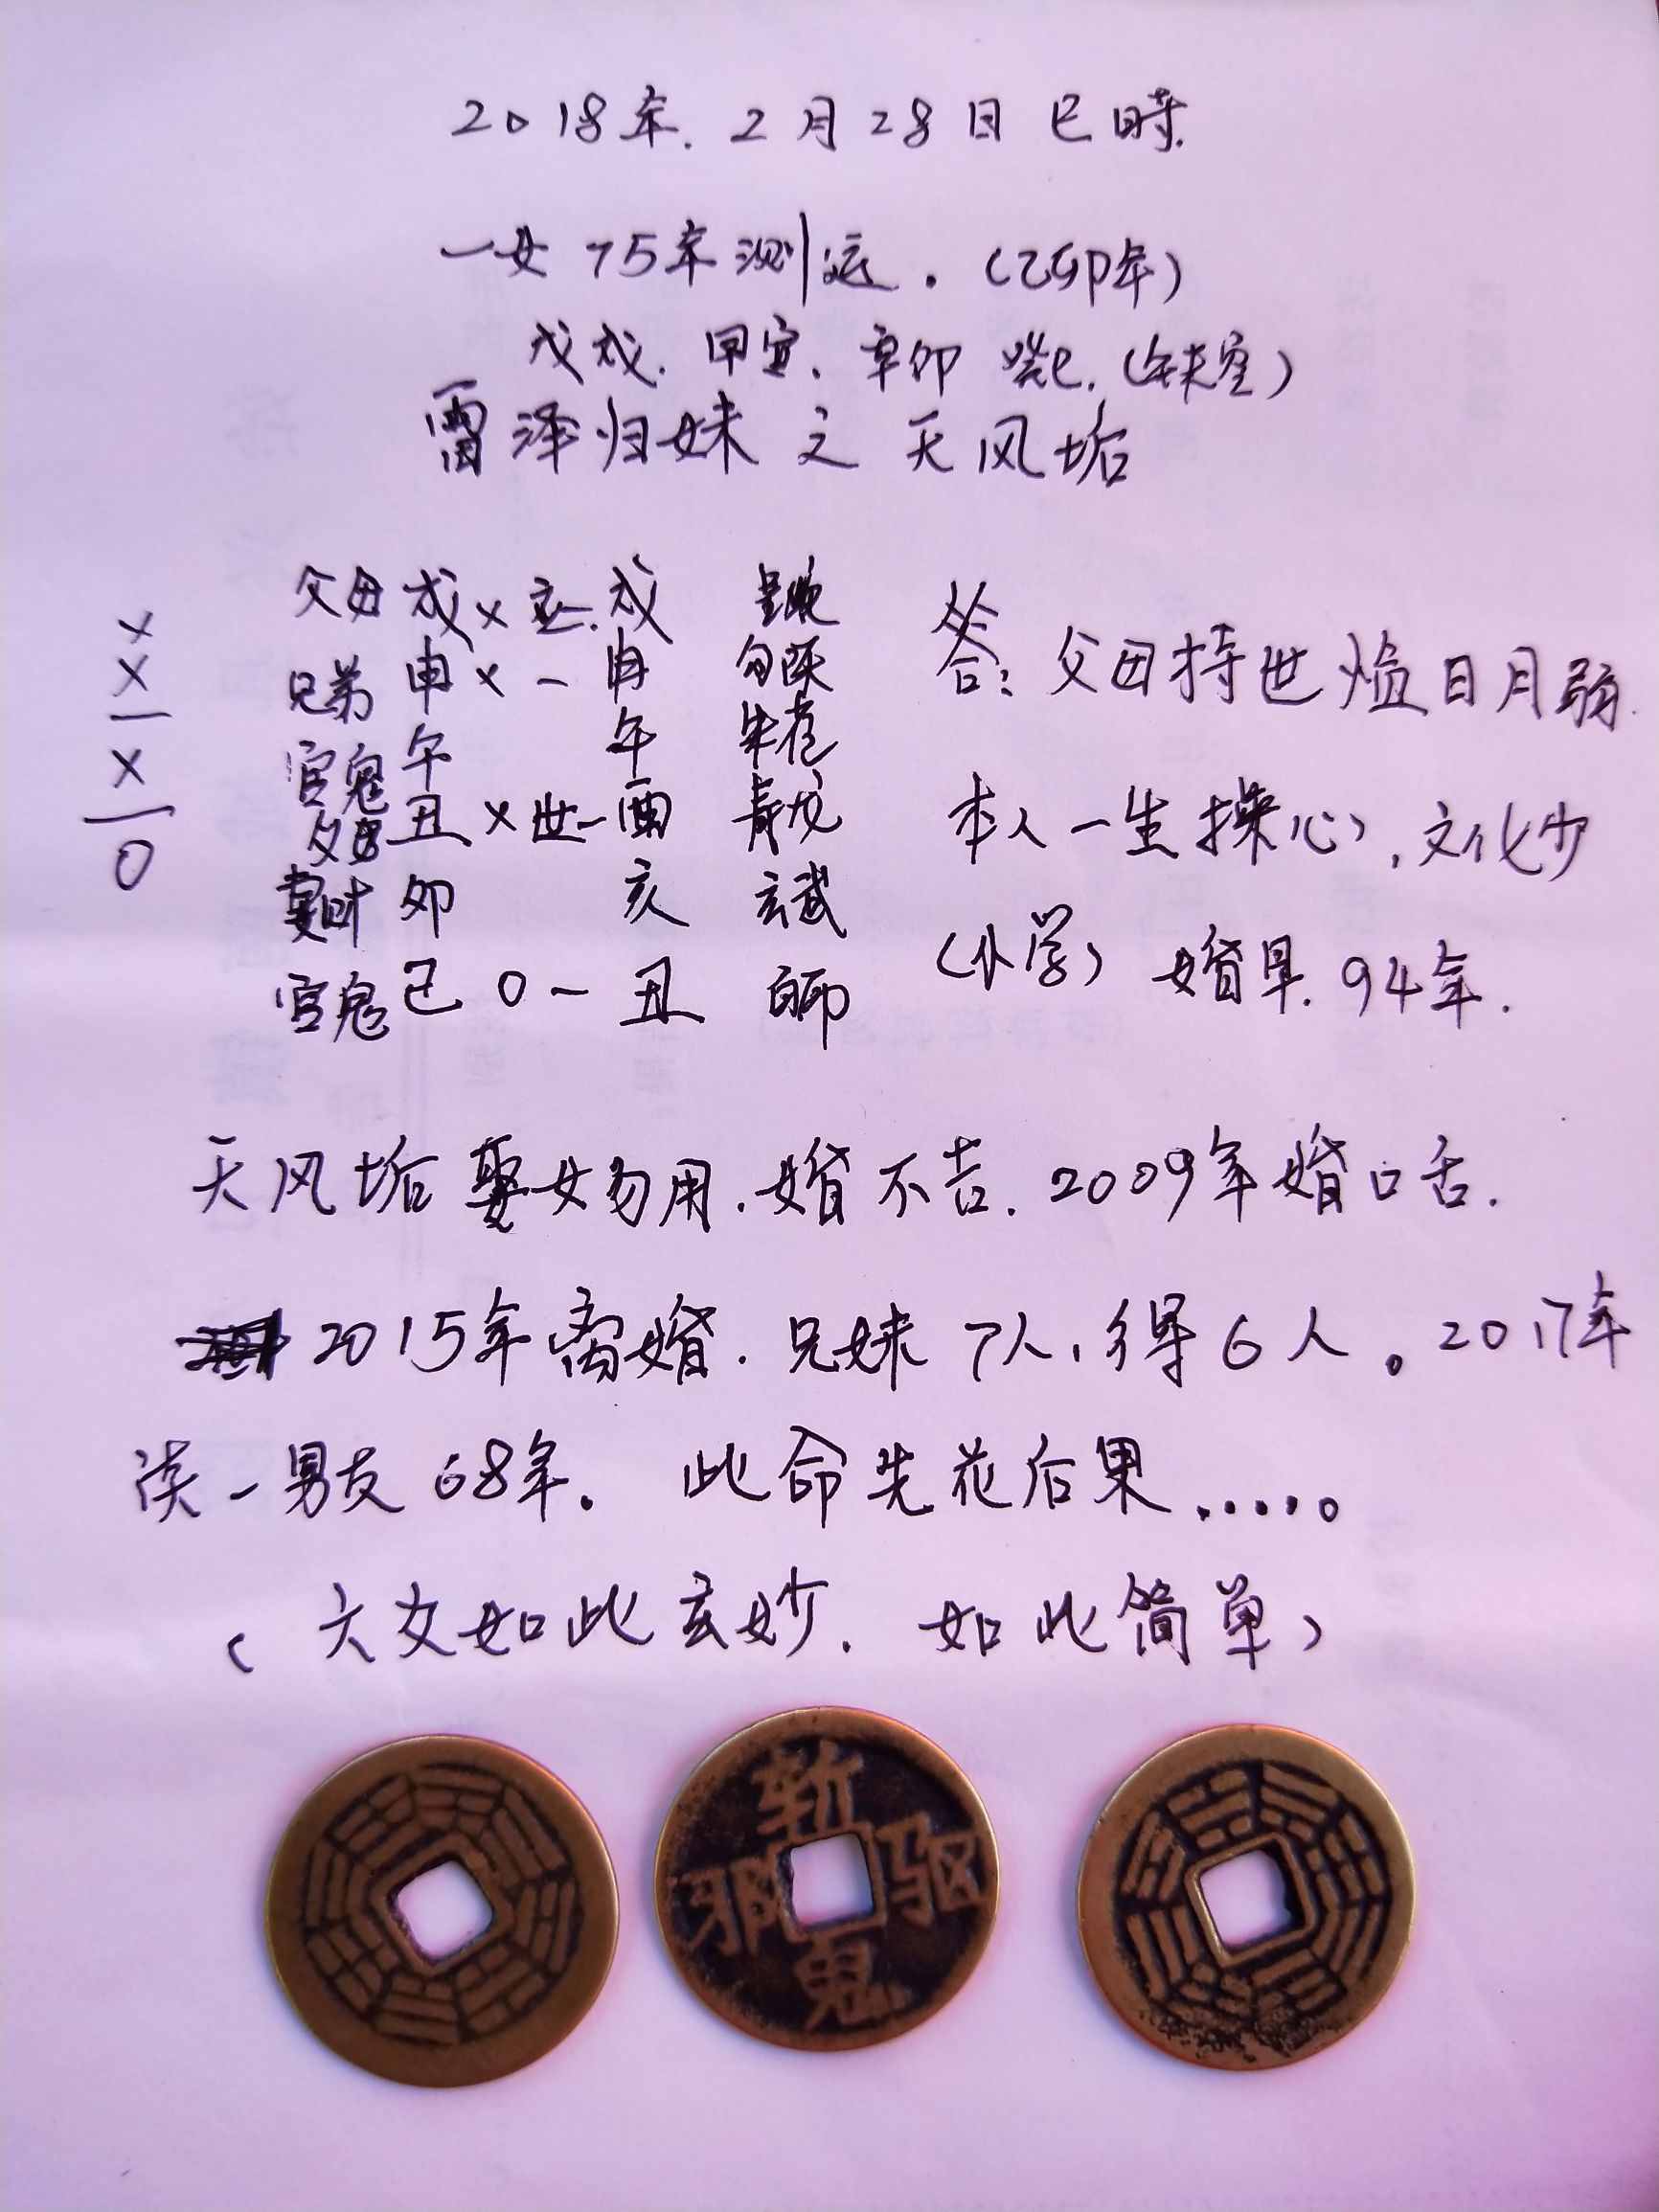 2018年.2月28日巳时.
一女75年测运.(乙卯年)
戊戌.甲寅.辛卯 癸巳.(午未空)
雷泽归妹之天风垢
× 父母 戌 × 应. 戌
× 兄弟 申 × - 申 勾陈 答:父母持世临日月弱.
— 官鬼 午 午 朱雀
× 父母 丑 × 世 - 酉 青龙 本人一生操心,文化少
— 妻财 卯 亥 玄武
O 官鬼 巳 O - 丑 白虎 (小学)婚早.94年.
天风垢娶女勿用.婚不吉.2009年婚口舌.
2015年离婚.兄妹7人,得6人。2017年
谈一男友68年。此命先花后果......。
(六爻如此玄妙.如此简单)
斩
邪 驱
鬼